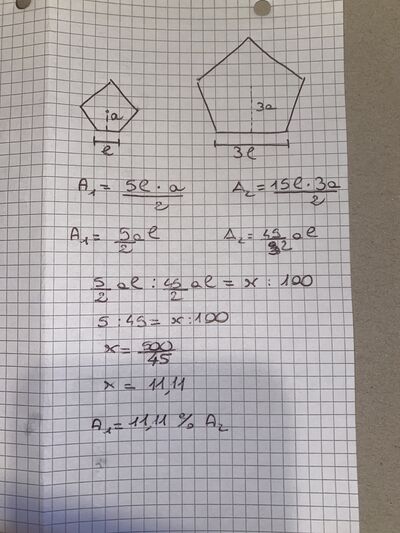 a
l
3a
3l
A₁ = 5l · a / 2
A₂ = 15l · 3a / 2
A₁ = 5/2 al
A₂ = 45/2 al
5/2 al : 45/2 al = x : 100
5 : 45 = x : 100
x = 500/45
x = 11,11
A₁ = 11,11 % A₂